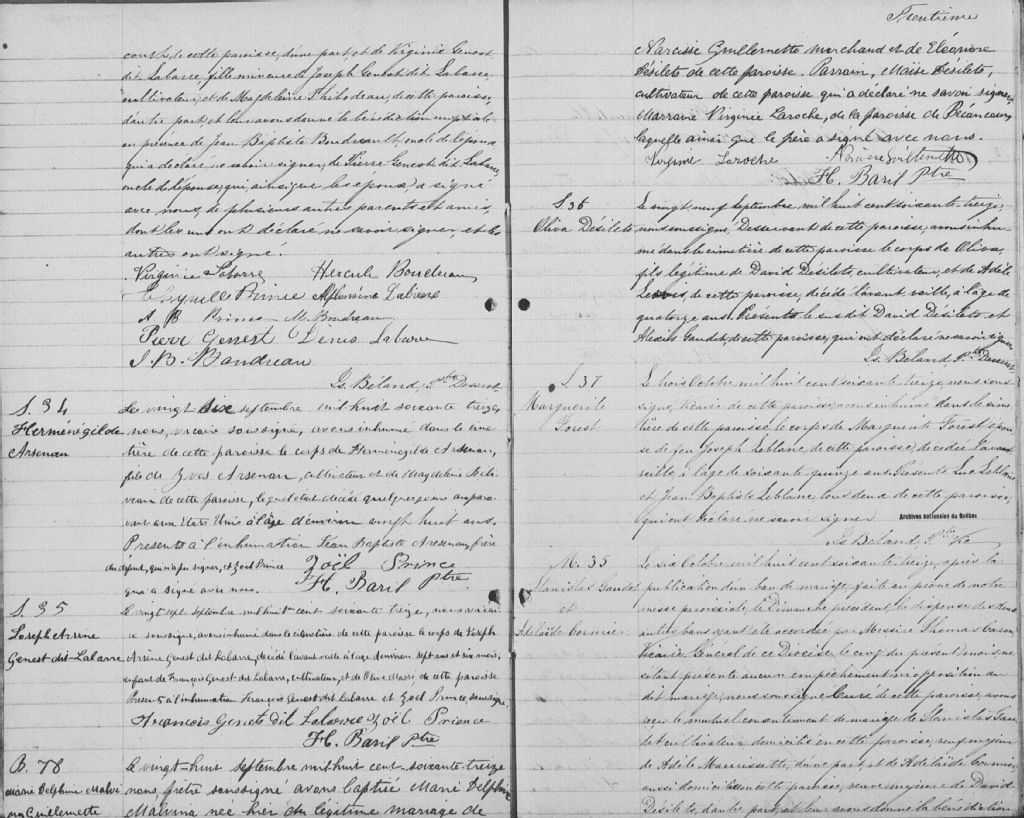 cousts, de cette paroisse, d'une part, et de Virginie Genest
dit Labarre fille mineure de Joseph Genest dit Labarre,
cultivateur, et de Magdeleine Thibodeau, de cette paroisse,
d'autre part, et leur avons donné la bénédiction nuptiale
en présence de Jean Baptiste Boudreau, oncle de l'époux
qui a déclaré ne savoir signer, de Pierre Genest dit Labarre,
oncle de l'épouse, qui, ainsi que les époux, a signé
avec nous, de plusieurs autres parents et amis,
dont les uns ont déclaré ne savoir signer, et les
autres ont signé.
Virginie Labarre Hercule Boudreau
Prince Alphonsine Labarre
A B Prince M. Boudreau
Pierr Genest Denis Labarre
J. B. Boudreau
Ls. Béland, Ptre Desservt
S. 34
Herménégilde
Arsenau
Le vingt six septembre mil huit soixante treize,
nous, vicaire soussigné, avons inhumé dans le cime
tière de cette paroisse le corps de Herménégilde Arsenau,
fils de Yves Arsenau, cultivateur et de Magdeleine
de cette paroisse, lequel était décédé quelques jours aupara
vant aux Etats Unis à l'âge d'environ vingt huit ans.
Présents à l'inhumation Jean Baptiste Arsenau, frère
du défunt, qui n'a pu signer, et Zoël Prince
qui a signé avec nous.
Zoël Prince
H. Baril Ptre
S. 35
Joseph Arsène
Genest dit Labarre
Le vingt sept septembre mil huit cent soixante treize, nous vicai
re soussigné, avons inhumé dans le cimetière de cette paroisse le corps de Joseph
Arsène Genest dit Labarre, décédé l'avant veille à l'âge d'environ sept ans et six mois,
enfant de François Genest dit Labarre, cultivateur, et de Olive Massé, de cette paroisse
Présents à l'inhumation François Genest dit Labarre et Zoël Prince, soussignés,
Francois Genest dit Labarre Zoël Prince
H. Baril Ptre
B. 78
Marie Delphine Malvi
na Guillemette
Le vingt-huit septembre mil huit cent soixante treize
nous, prêtre soussigné avons baptisé Marie Delphine
Malvina née hier du légitime mariage de
Trentième
Narcisse Guillemette marchand et de Eléonore
Désilets de cette paroisse. Parrain, Moïse Désilets,
cultivateur de cette paroisse qui a déclaré ne savoir signer
Marraine Virginie Laroche, de la paroisse de Bécancour,
laquelle ainsi que le père a signé avec nous.
Virginie Laroche Narcisse Guillemette
H. Baril Ptre
S. 36
Oliva Désilets
Le vingt neuf septembre mil huit cent soixante treize,
nous soussigné, Desservant de cette paroisse, avons inhu
mé dans le cimetière de cette paroisse le corps de Oliva,
fils légitime de David Désilets, cultivateur, et de Adèle
de cette paroisse, décédé l'avant veille, à l'âge de
quatorze ans. Présents le susdit David Désilets et
Alexis Gaudet, de cette paroisse, qui ont déclaré ne savoir signer.
Ls. Béland, Ptre Desservt
S. 37
Marguerite
Forest
Le trois Octobre mil huit cent soixante treize, nous sous
signé, Vicaire de cette paroisse, avons inhumé dans le cime
tière de cette paroisse le corps de Marguerite Forest épou
se de feu Joseph Leblanc, de cette paroisse, décédée l'avant
veille, à l'âge de soixante quinze ans. Présents Luc Leblanc
et Jean Baptiste Leblanc tous deux de cette paroisse,
qui ont déclaré ne savoir signer
Archives nationales du Québec
Ls Béland, Ptre Vic
M. 35
Stanislas Gaudet
et
Adélaïde Cormier
Le six Octobre mil huit cent soixante treize, après la
publication d'un ban de mariage faite au prône de notre
messe paroissiale, le Dimanche précédent, la dispense des deux
autres bans ayant été accordée par Messire Thomas Caron
Vicaire Général de ce Diocèse, le cinq du présent mois, ne
s'étant présenté aucun empêchement ni opposition au
dit mariage, nous soussigné Curé de cette paroisse, avons
reçu le mutuel consentement de mariage de Stanislas Gau
det cultivateur domicilié en cette paroisse, veuf majeur
de Adèle Maurissette, d'une part, et de Adélaïde Cormier
aussi domiciliée en cette paroisse, veuve majeure de David
Désilets, d'autre part, et leur avons donné la bénédiction